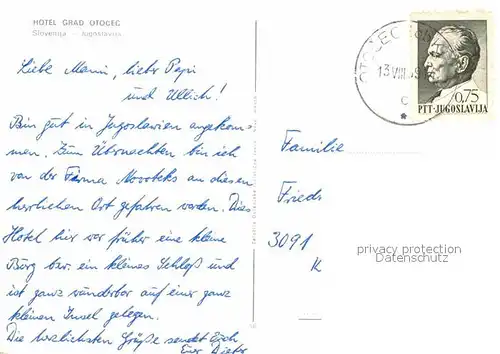 HOTEL GRAD OTOČEC
Slovenija - Jugoslavija
Liebe Mami, lieber Pepi
und Ullich!
Bin gut in Jugoslawien angekom-
men. Zum Übernachten bin ich
von der Firma Novoteks an diesen
herrlichen Ort gefahren worden. Dies
Hotel hier war früher eine kleine
Burg bzw. ein kleines Schloß und
ist ganz wunderbar auf einer ganz
kleinen Insel gelegen.
Die herzlichsten Grüße sendet Euch
Euer Dieter
OTOČEC
13 VIII
c
0.75
PTT-JUGOSLAVIJA
Familie
Friedr
3091
K
privacy protection
Datenschutz